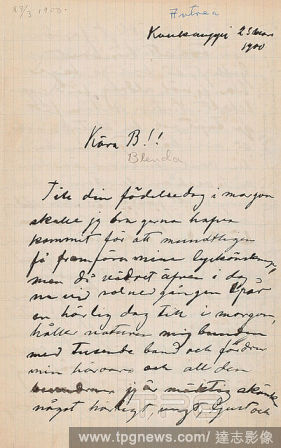 23/3 1900.
Antrea
Kuuksauppi 25 Mars
1900
Kära B!!
Blenda
Till din födelsedag i morgon
skulle jg bra gerna hafva
kommit för att mundtligen
få framföra mina lyckönskn,
men då vädret äfven i dag
nu vid solnedgången spår
en härlig dag till i morgon,
håller naturen mig bunden
med tusende band och fordrar
min närvaro och all den
jg är mäktig skänk
något härligt, ungt, ljust och
www.tpgnews.com / 達志影像